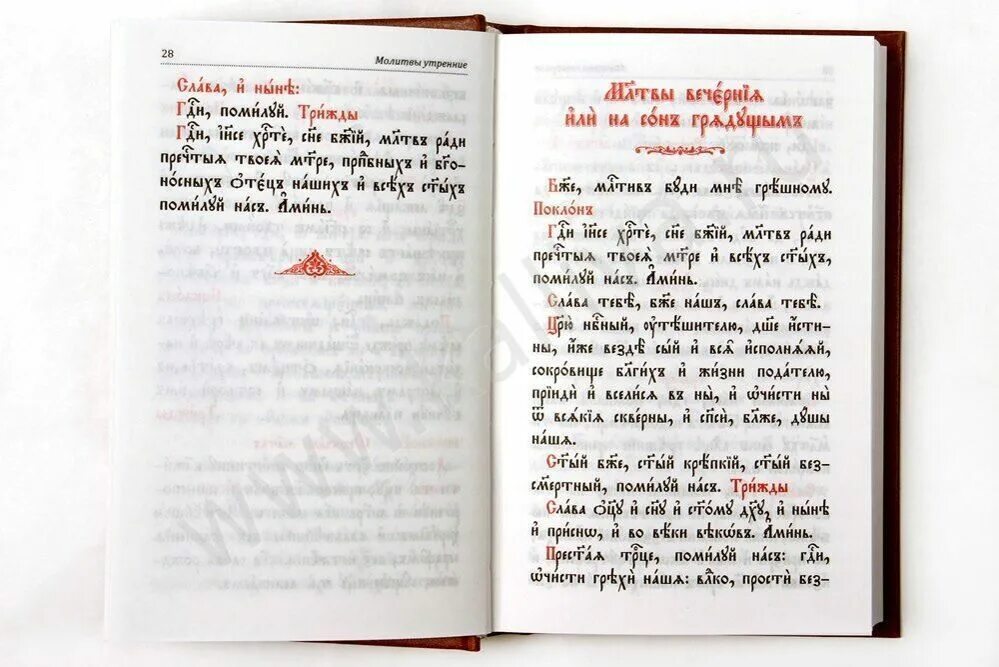 28
Молитвы утренние
Сла́ва, и҆ ны́нѣ:
Гдⷭ҇и, поми́луй. Три́жды
Гдⷭ҇и, і҆и҃се хрⷭ҇те́, сн҃е бж҃їй, мл҃твъ ра́ди
пречⷭ҇тыѧ твоеѧ̀ мт҃ре, прпⷣбныхъ и҆ бг҃о-
но́сныхъ ѻ҆те́цъ на́шихъ и҆ всѣ́хъ ст҃ы́хъ
поми́луй на́съ. А҆ми́нь.
Мл҃твы вече́рнїѧ
и҆лѝ на со́нъ грѧду́щымъ
Бж҃е, млⷭ҇тивъ бу́ди мнѣ̀ грѣ́шному.
Покло́нъ
Гдⷭ҇и, і҆и҃се хрⷭ҇те́, сн҃е бж҃їй, мл҃твъ ра́ди
пречⷭ҇тыѧ твоеѧ̀ мт҃ре и҆ всѣ́хъ ст҃ы́хъ,
поми́луй на́съ. А҆ми́нь.
Сла́ва тебѣ̀, бж҃е на́шъ, сла́ва тебѣ̀.
Цр҃ю̀ нбⷭ҇ный, ᲂу҆тѣ́шителю, дш҃е и҆́сти-
ны, и҆́же вездѣ̀ сы́й и҆ всѧ̑ и҆сполнѧ́ѧй,
сокро́вище бл҃ги́хъ и҆ жи́зни пода́телю,
прїидѝ и҆ всели́сѧ въ ны̀, и҆ ѡ҆чи́сти ны̀
ѿ всѧ́кїѧ сквѣ́рны, и҆ сп҃сѝ, бл҃же, ду́шы
на́шѧ.
Ст҃ы́й бж҃е, ст҃ы́й крѣ́пкїй, ст҃ы́й без-
сме́ртный, поми́луй на́съ. Три́жды
Сла́ва ѻ҆ц҃у̀ и҆ сн҃у и҆ ст҃о́му дх҃у, и҆ ны́нѣ
и҆ при́снѡ, и҆ во вѣ́ки вѣкѡ́въ. А҆ми́нь.
Прест҃а́ѧ трⷪ҇це, поми́луй на́съ: гдⷭ҇и,
ѡ҆чи́сти грѣхѝ на́шѧ: влⷣко, простѝ без-